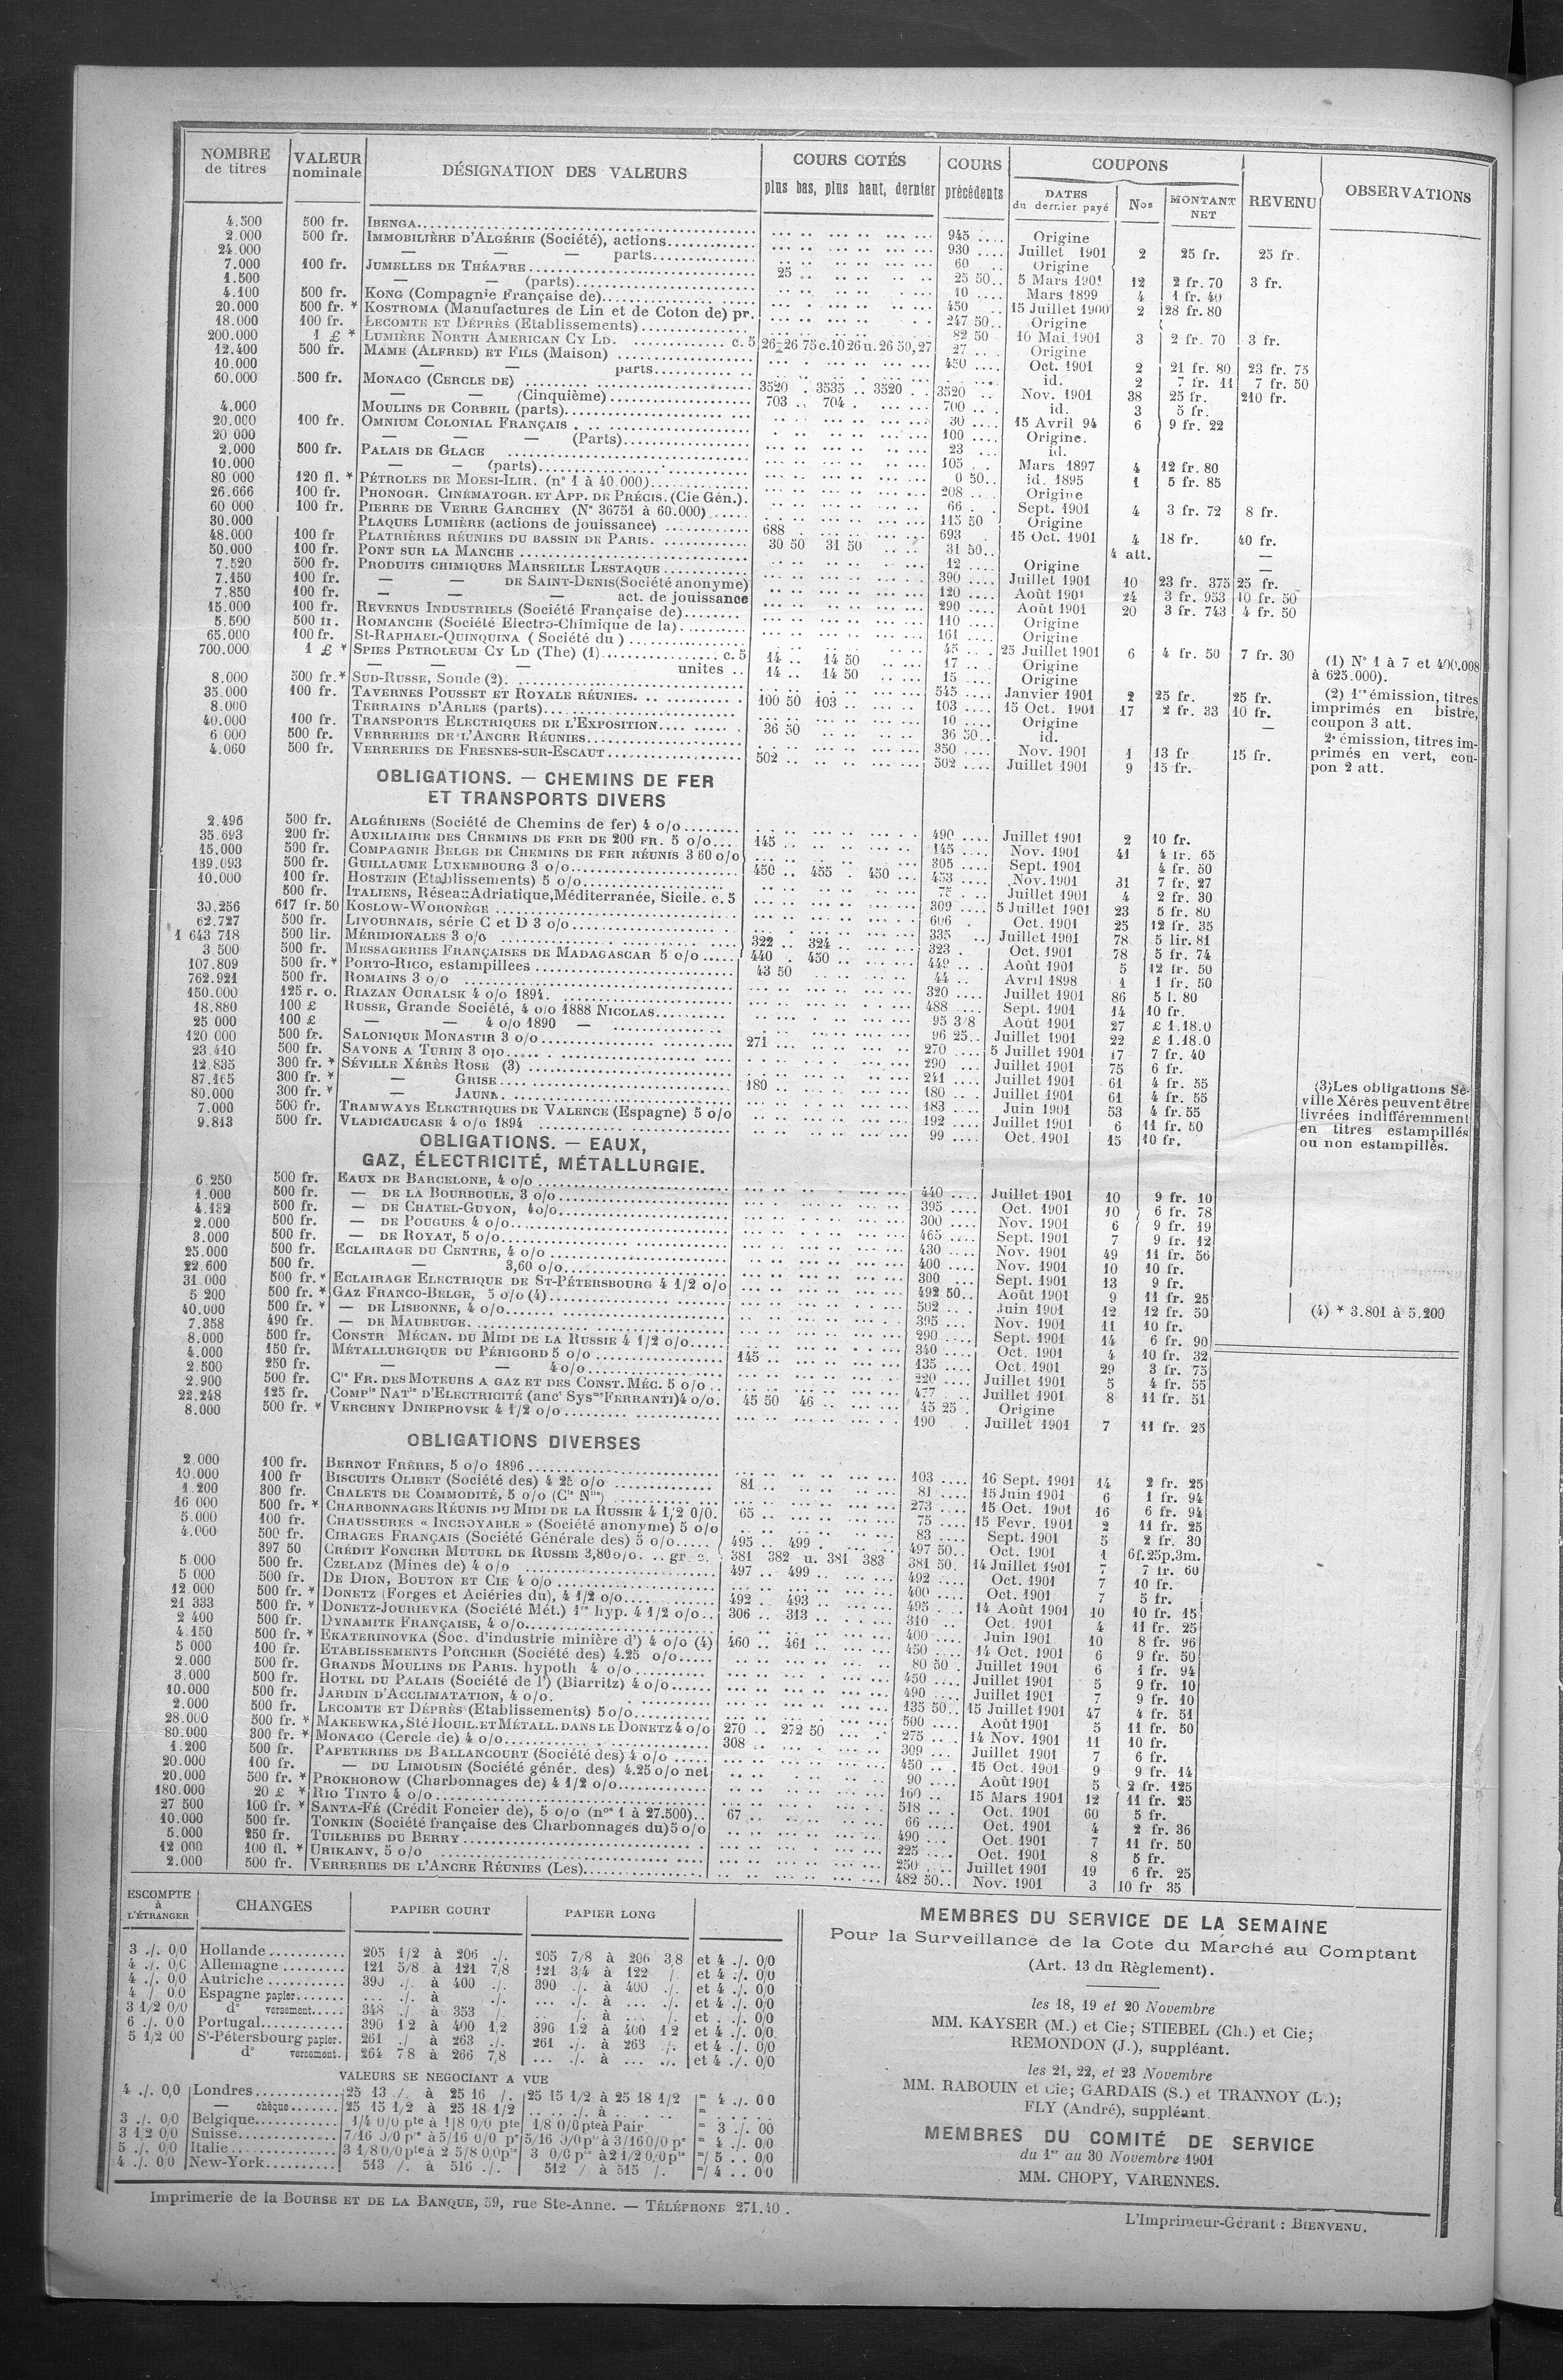 NOMBRE de titres | VALEUR nominale | DÉSIGNATION DES VALEURS | COURS COTÉS plus bas, plus haut, dernier | COURS précédents | COUPONS DATES du dernier payé | Nos | MONTANT NET | REVENU | OBSERVATIONS
4.500 500 fr. IBENGA 945 Origine
2.000 500 fr. IMMOBILIÈRE D'ALGÉRIE (Société), actions 930 Juillet 1901 2 25 fr. 25 fr.
24.000 — — — parts 60 Origine
7.000 100 fr. JUMELLES DE THÉATRE 25 25 50 5 Mars 1901 12 2 fr. 70 3 fr.
1.500 — — (parts) 10 Mars 1899 4 1 fr. 40
4.100 500 fr. KONG (Compagnie Française de) 450 15 Juillet 1900 2 28 fr. 80
20.000 500 fr. * KOSTROMA (Manufactures de Lin et de Coton de) pr. 247 50 Origine
18.000 100 fr. LECOMTE ET DÉPRÈS (Etablissements) 82 50 10 Mai 1901 3 2 fr. 70 3 fr.
200.000 1 £ * LUMIÈRE NORTH AMERICAN CY LD. c. 5 26-26 75 c. 10 26 u. 26 50, 27 27 Origine
12.400 500 fr. MAME (ALFRED) ET FILS (Maison) 450 Oct. 1901 2 21 fr. 80 23 fr. 75
10.000 — — parts id. 2 7 fr. 11 7 fr. 50
60.000 500 fr. MONACO (CERCLE DE) 3520 3535 3520 3520 Nov. 1901 38 25 fr. 210 fr.
— — (Cinquième) 703 704 700 id. 3 5 fr.
4.000 MOULINS DE CORBEIL (parts) 30 15 Avril 94 6 9 fr. 22
20.000 100 fr. OMNIUM COLONIAL FRANÇAIS 100 Origine.
20 000 — — — (Parts) 23 id.
2.000 500 fr. PALAIS DE GLACE 105 Mars 1897 4 12 fr. 80
10.000 — — (parts) 0 50 id. 1895 1 5 fr. 85
80 000 120 fl. * PÉTROLES DE MOESI-ILIR. (n° 1 à 40.000) 208 Origine
26.666 100 fr. PHONOGR. CINÉMATOGR. ET APP. DE PRÉCIS. (Cie Gén.). 66 Sept. 1901 4 3 fr. 72 8 fr.
60 000 100 fr. PIERRE DE VERRE GARCHEY (N° 36751 à 60.000) 115 50 Origine
30.000 PLAQUES LUMIÈRE (actions de jouissance) 688 693 15 Oct. 1901 4 18 fr. 40 fr.
48.000 100 fr PLATRIÈRES RÉUNIES DU BASSIN DE PARIS. 30 50 31 50 31 50 4 att. —
50.000 100 fr. PONT SUR LA MANCHE 12 Origine —
7.520 500 fr. PRODUITS CHIMIQUES MARSEILLE LESTAQUE 390 Juillet 1901 10 23 fr. 375 25 fr.
7.150 100 fr. — — DE SAINT-DENIS (Société anonyme) 120 Août 1901 24 3 fr. 953 10 fr. 50
7.850 100 fr. — — — act. de jouissance 290 Août 1901 20 3 fr. 743 4 fr. 50
15.000 100 fr. REVENUS INDUSTRIELS (Société Française de) 110 Origine
5.500 500 fr. ROMANCHE (Société Electro-Chimique de la) 161 Origine
65.000 100 fr. St-RAPHAEL-QUINQUINA (Société du) 45 25 Juillet 1901 6 4 fr. 50 7 fr. 30
700.000 1 £ * SPIES PETROLEUM CY LD (The) (1) c. 5 14 14 50 17 Origine
— — — unites 14 14 50 15 Origine
8.000 500 fr. * SUD-RUSSE, Soude (2). 545 Janvier 1901 2 25 fr. 25 fr.
35.000 100 fr. TAVERNES POUSSET ET ROYALE RÉUNIES. 100 50 103 103 15 Oct. 1901 17 2 fr. 33 10 fr.
8.000 TERRAINS D'ARLES (parts) 10 Origine
40.000 100 fr. TRANSPORTS ELECTRIQUES DE L'EXPOSITION 36 50 36 50 id. —
6 000 500 fr. VERRERIES DE L'ANCRE RÉUNIES 350 Nov. 1901 1 13 fr 15 fr.
4.060 500 fr. VERRERIES DE FRESNES-SUR-ESCAUT 502 502 Juillet 1901 9 15 fr.
(1) N° 1 à 7 et 400.008
à 625.000).
(2) 1re émission, titres
imprimés en bistre,
coupon 3 att.
2e émission, titres im-
primés en vert, cou-
pon 2 att.
OBLIGATIONS. — CHEMINS DE FER
ET TRANSPORTS DIVERS
2.496 500 fr. ALGÉRIENS (Société de Chemins de fer) 4 o/o 490 Juillet 1901 2 10 fr.
35.693 200 fr. AUXILIAIRE DES CHEMINS DE FER DE 200 FR. 5 o/o 145 145 Nov. 1901 41 4 fr. 65
15.000 500 fr. COMPAGNIE BELGE DE CHEMINS DE FER RÉUNIS 3 60 o/o 305 Sept. 1901 4 fr. 50
189.093 500 fr. GUILLAUME LUXEMBOURG 3 o/o 450 455 450 453 Nov. 1901 31 7 fr. 27
10.000 100 fr. HOSTEIN (Etablissements) 5 o/o 75 Juillet 1901 4 2 fr. 30
500 fr. ITALIENS, Réseaux Adriatique, Méditerranée, Sicile. c. 5 309 5 Juillet 1901 23 5 fr. 80
30.256 617 fr. 50 KOSLOW-WORONÈGE 606 Oct. 1901 25 12 fr. 35
62.727 500 fr. LIVOURNAIS, série C et D 3 o/o 335 Juillet 1901 78 5 lir. 81
1 643 718 500 lir. MÉRIDIONALES 3 o/o 322 324 323 Oct. 1901 78 5 fr. 74
3.500 500 fr. MESSAGERIES FRANÇAISES DE MADAGASCAR 5 o/o 440 450 449 Août 1901 5 12 fr. 50
107.809 500 fr. * PORTO-RICO, estampillees 43 50 44 Avril 1898 1 1 fr. 50
762.921 500 fr. ROMAINS 3 o/o 320 Juillet 1901 86 5 l. 80
150.000 125 r. o. RIAZAN OURALSK 4 o/o 1894. 488 Sept. 1901 14 10 fr.
18.880 100 £ RUSSE, Grande Société, 4 o/o 1888 NICOLAS 95 3/8 Août 1901 27 £ 1.18.0
25 000 100 £ — — 4 o/o 1890 — 96 25 Juillet 1901 22 £ 1.18.0
120 000 500 fr. SALONIQUE MONASTIR 3 o/o 271 270 5 Juillet 1901 17 7 fr. 40
23.410 500 fr. SAVONE A TURIN 3 o/o 290 Juillet 1901 75 6 fr.
12.835 300 fr. * SÉVILLE XÉRÈS ROSE (3) 241 Juillet 1901 61 4 fr. 55
87.165 300 fr. * — GRISE 180 180 Juillet 1901 61 4 fr. 55
80.000 300 fr. * — JAUNE. 183 Juin 1901 53 4 fr. 55
7.000 500 fr. TRAMWAYS ELECTRIQUES DE VALENCE (Espagne) 5 o/o 192 Juillet 1901 6 11 fr. 50
9.813 500 fr. VLADICAUCASE 4 o/o 1894 99 Oct. 1901 15 10 fr.
(3) Les obligations Sé-
ville Xérès peuvent être
livrées indifféremment
en titres estampillés
ou non estampillés.
OBLIGATIONS. — EAUX,
GAZ, ÉLECTRICITÉ, MÉTALLURGIE.
6 250 500 fr. EAUX DE BARCELONE, 4 o/o 440 Juillet 1901 10 9 fr. 10
1.000 500 fr. — DE LA BOURBOULE, 3 o/o 395 Oct. 1901 10 6 fr. 78
4.132 500 fr. — DE CHATEL-GUYON, 4 o/o 300 Nov. 1901 6 9 fr. 19
2.000 500 fr. — DE POUGUES 4 o/o 465 Sept. 1901 7 9 fr. 12
3.000 500 fr. — DE ROYAT, 5 o/o 430 Nov. 1901 49 11 fr. 56
25.000 500 fr. ECLAIRAGE DU CENTRE, 4 o/o 400 Nov. 1901 10 10 fr.
22.600 500 fr. — 3,60 o/o 300 Sept. 1901 13 9 fr.
31.000 500 fr. * ECLAIRAGE ELECTRIQUE DE ST-PÉTERSBOURG 4 1/2 o/o 492 50 Août 1901 9 11 fr. 25
5 200 500 fr. * GAZ FRANCO-BELGE, 5 o/o (4) 502 Juin 1901 12 12 fr. 50
40.000 500 fr. * — DE LISBONNE, 4 o/o 395 Nov. 1901 11 10 fr.
7.358 490 fr. — DE MAUBEUGE 290 Sept. 1901 14 6 fr. 90
8.000 500 fr. CONSTR MÉCAN. DU MIDI DE LA RUSSIE 4 1/2 o/o 340 Oct. 1901 4 10 fr. 32
4.000 150 fr. MÉTALLURGIQUE DU PÉRIGORD 5 o/o 145 135 Oct. 1901 29 3 fr. 75
2.500 250 fr. — — 4 o/o 220 Juillet 1901 5 4 fr. 55
2.900 500 fr. Cie FR. DES MOTEURS A GAZ ET DES CONST. MÉC. 5 o/o 477 Juillet 1901 8 11 fr. 51
22.248 125 fr. COMPie NATle D'ELECTRICITÉ (anct Sysme FERRANTI) 4 o/o. 45 50 46 45 25 Origine
8.000 500 fr. * VERCHNY DNIEPROVSK 4 1/2 o/o 190 Juillet 1901 7 11 fr. 25
(4) * 3.801 à 5.200
OBLIGATIONS DIVERSES
2.000 100 fr. BERNOT FRÈRES, 5 o/o 1896 103 16 Sept. 1901 14 2 fr. 25
10.000 100 fr BISCUITS OLIBET (Société des) 4 25 o/o 81 81 15 Juin 1901 6 1 fr. 94
1.200 300 fr. CHALETS DE COMMODITÉ, 5 o/o (Cie Nlle) 273 15 Oct. 1901 16 6 fr. 94
16 000 500 fr. * CHARBONNAGES RÉUNIS DU MIDI DE LA RUSSIE 4 1/2 0/0. 65 75 15 Fevr. 1901 2 11 fr. 25
5.000 100 fr. CHAUSSURES « INCROYABLE » (Société anonyme) 5 o/o 83 Sept. 1901 5 2 fr. 30
4.000 500 fr. CIRAGES FRANÇAIS (Société Générale des) 5 o/o 495 499 497 50 Oct. 1901 1 6f.25p.3m.
397 50 CRÉDIT FONCIER MUTUEL DE RUSSIE 3,80 o/o. gr. c. 381 382 u. 381 383 381 50 14 Juillet 1901 7 7 fr. 60
5.000 500 fr. CZELADZ (Mines de) 4 o/o 497 499 492 Oct. 1901 7 10 fr.
5 000 500 fr. DE DION, BOUTON ET CIE 4 o/o 400 Oct. 1901 7 5 fr.
12.000 500 fr. * DONETZ (Forges et Aciéries du), 4 1/2 o/o 492 493 495 14 Août 1901 10 10 fr. 15
21 333 500 fr. * DONETZ-JOURIEVKA (Société Mét.) 1re hyp. 4 1/2 o/o 306 313 310 Oct. 1901 4 11 fr. 25
2 400 500 fr. DYNAMITE FRANÇAISE, 4 o/o 400 Juin 1901 10 8 fr. 96
4.150 500 fr. * EKATERINOVKA (Soc. d'industrie minière d') 4 o/o (4) 460 461 450 14 Oct. 1901 6 9 fr. 50
5 000 100 fr. ETABLISSEMENTS PORCHER (Société des) 4.25 o/o 80 50 Juillet 1901 6 1 fr. 94
2.000 500 fr. GRANDS MOULINS DE PARIS. hypoth 4 o/o 450 Juillet 1901 5 9 fr. 10
3.000 500 fr. HOTEL DU PALAIS (Société de l') (Biarritz) 4 o/o 490 Juillet 1901 7 9 fr. 10
10.000 500 fr. JARDIN D'ACCLIMATATION, 4 o/o. 135 50 15 Juillet 1901 47 4 fr. 51
2.000 500 fr. LECOMTE ET DÉPRÈS (Etablissements) 5 o/o 500 Août 1901 5 11 fr. 50
28.000 500 fr. * MAKEEWKA, Sté HOUIL. ET MÉTALL. DANS LE DONETZ 4 o/o 270 272 50 275 14 Nov. 1901 11 10 fr.
80.000 300 fr. * MONACO (Cercle de) 4 o/o 308 309 Juillet 1901 7 6 fr.
1.200 500 fr. PAPETERIES DE BALLANCOURT (Société des) 4 o/o 450 15 Oct. 1901 9 9 fr. 14
20.000 100 fr. — DU LIMOUSIN (Société génér. des) 4.25 o/o net 90 Août 1901 5 2 fr. 125
20.000 500 fr. * PROKHOROW (Charbonnages de) 4 1/2 o/o 160 15 Mars 1901 12 11 fr. 25
180.000 20 £ * RIO TINTO 4 o/o 518 Oct. 1901 60 5 fr.
27 500 100 fr. * SANTA-FÉ (Crédit Foncier de), 5 o/o (nos 1 à 27.500) 67 66 Oct. 1901 4 2 fr. 36
10.000 500 fr. TONKIN (Société française des Charbonnages du) 5 o/o 490 Oct. 1901 7 11 fr. 50
5.000 250 fr. TUILERIES DU BERRY 225 Oct. 1901 8 5 fr.
12.000 100 fl. * URIKANY, 5 o/o 250 Juillet 1901 19 6 fr. 25
2.000 500 fr. VERRERIES DE L'ANCRE RÉUNIES (Les) 482 50 Nov. 1901 3 10 fr 35
ESCOMPTE à L'ÉTRANGER | CHANGES | PAPIER COURT | PAPIER LONG
3 ./. 0/0 Hollande 205 1/2 à 206 ./. 205 7/8 à 206 3 8 et 4 ./. 0/0
4 ./. 0/0 Allemagne 121 5/8 à 121 7/8 121 3/4 à 122 / et 4 ./. 0/0
4 ./. 0/0 Autriche 390 ./. à 400 ./. 390 ./. à 400 ./. et 4 ./. 0/0
4 / 0/0 Espagne papier ... ./. à ./. ... ./. à ... ./. et 4 ./. 0/0
3 1/2 0/0 d° versement 348 ./ à 353 / ... ./. à ... /. et . ./. 0/0
6 ./. 0/0 Portugal 390 1 2 à 400 1/2 390 1/2 à 400 1 2 et 4 ./. 0/0
5 1/2 00 St-Pétersbourg papier. 261 ./ à 263 ./. 261 ./. à 263 ./. et 4 ./. 0/0
d° versement. 264 7 8 à 266 7/8 ... ./. à ... ./. et 4 ./. 0/0
VALEURS SE NEGOCIANT A VUE
4 ./. 0/0 Londres 25 13 /. à 25 16 /. 25 15 1/2 à 25 18 1/2 = 4 ./. 0 0
— chèque 25 15 1/2 à 25 18 1/2 ... ./. à ... =
3 ./. 0/0 Belgique 1/4 0/0 pte à 1/8 0/0 pte 1/8 0/0 pte à Pair = 3 ./. 00
3 1/2 0/0 Suisse 7/16 0/0 pte à 5/16 0/0 pe 5/16 0/0 pte à 3/16 0/0 pe = 4 ./. 0/0
5 ./. 0/0 Italie 3 1/8 0/0 pte à 2 5/8 0/0 pte 3 0/0 pte à 2 1/2 0/0 pte =/ 5 . . 0/0
4 ./. 0/0 New-York 513 /. à 516 ./. 512 / à 515 /. =/ 4 . . 0/0
MEMBRES DU SERVICE DE LA SEMAINE
Pour la Surveillance de la Cote du Marché au Comptant
(Art. 13 du Règlement).
les 18, 19 et 20 Novembre
MM. KAYSER (M.) et Cie; STIEBEL (Ch.) et Cie;
REMONDON (J.), suppléant.
les 21, 22, et 23 Novembre
MM. RABOUIN et Cie; GARDAIS (S.) et TRANNOY (L.);
FLY (André), suppléant.
MEMBRES DU COMITÉ DE SERVICE
du 1er au 30 Novembre 1901
MM. CHOPY, VARENNES.
Imprimerie de la BOURSE ET DE LA BANQUE, 59, rue Ste-Anne. — TÉLÉPHONE 271.40.
L'Imprimeur-Gérant : BIENVENU.